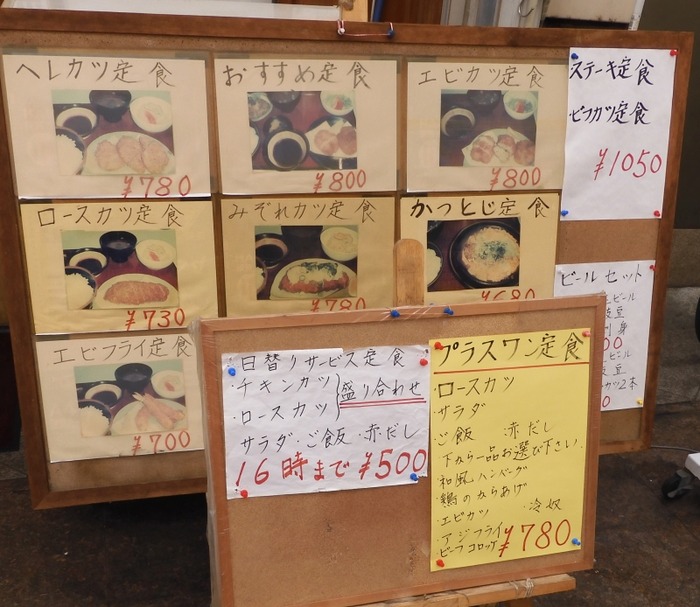 ヘレカツ定食
¥780
おすすめ定食
¥800
エビカツ定食
¥800
ステーキ定食
ビフカツ定食
¥1050
ロースカツ定食
¥730
みぞれカツ定食
¥780
かつとじ定食
¥680
エビフライ定食
¥700
ビールセット
ビール
枝豆
刺身
ビール
枝豆
カツ2本
日替りサービス定食
・チキンカツ
・ロースカツ
盛り合わせ
サラダ・ご飯・赤だし
16時まで¥500
プラスワン定食
・ロースカツ
・サラダ
・ご飯 赤だし
下から一品お選び下さい
・和風ハンバーグ
・鶏のからあげ
・エビカツ ・冷奴
・アジフライ
・ビーフコロッケ
¥780